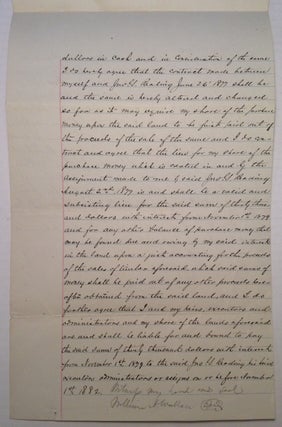 dollars in cash and in consideration of the same
I do hereby agree that the contract made between
myself and Jno. G. Reading June 26th 1877 shall be
and the same is hereby altered and changed
so far as it may require my share of the purchase
money upon the said land to be first paid out of
the proceeds of the sale of the same and I do con-
tract and agree that the lien for my share of the
purchase money which is vested in and by the
assignment made to me by said Jno. G. Reading
August 2nd 1877 is and shall be a valid and
subsisting lien for the said sum of thirty thous-
and dollars with interest from November 1st 1879
and for any other balance of purchase money that
may be found due and owing by my said interest
in the land upon a just accounting for the proceeds
of the sales of timber aforesaid which said sums of
money shall be paid out of any other proceeds here-
after obtained from the said land, and I do
further agree that I and my heirs, executors and
administrators and my share of the lands aforesaid
are and shall be liable for and bound to pay
the said sum of thirty thousand dollars with interest
from November 1st 1879 to the said Jno. G. Reading his heirs
executors administrators or assigns on or before
1st 1882. Witness my hand and seal
William